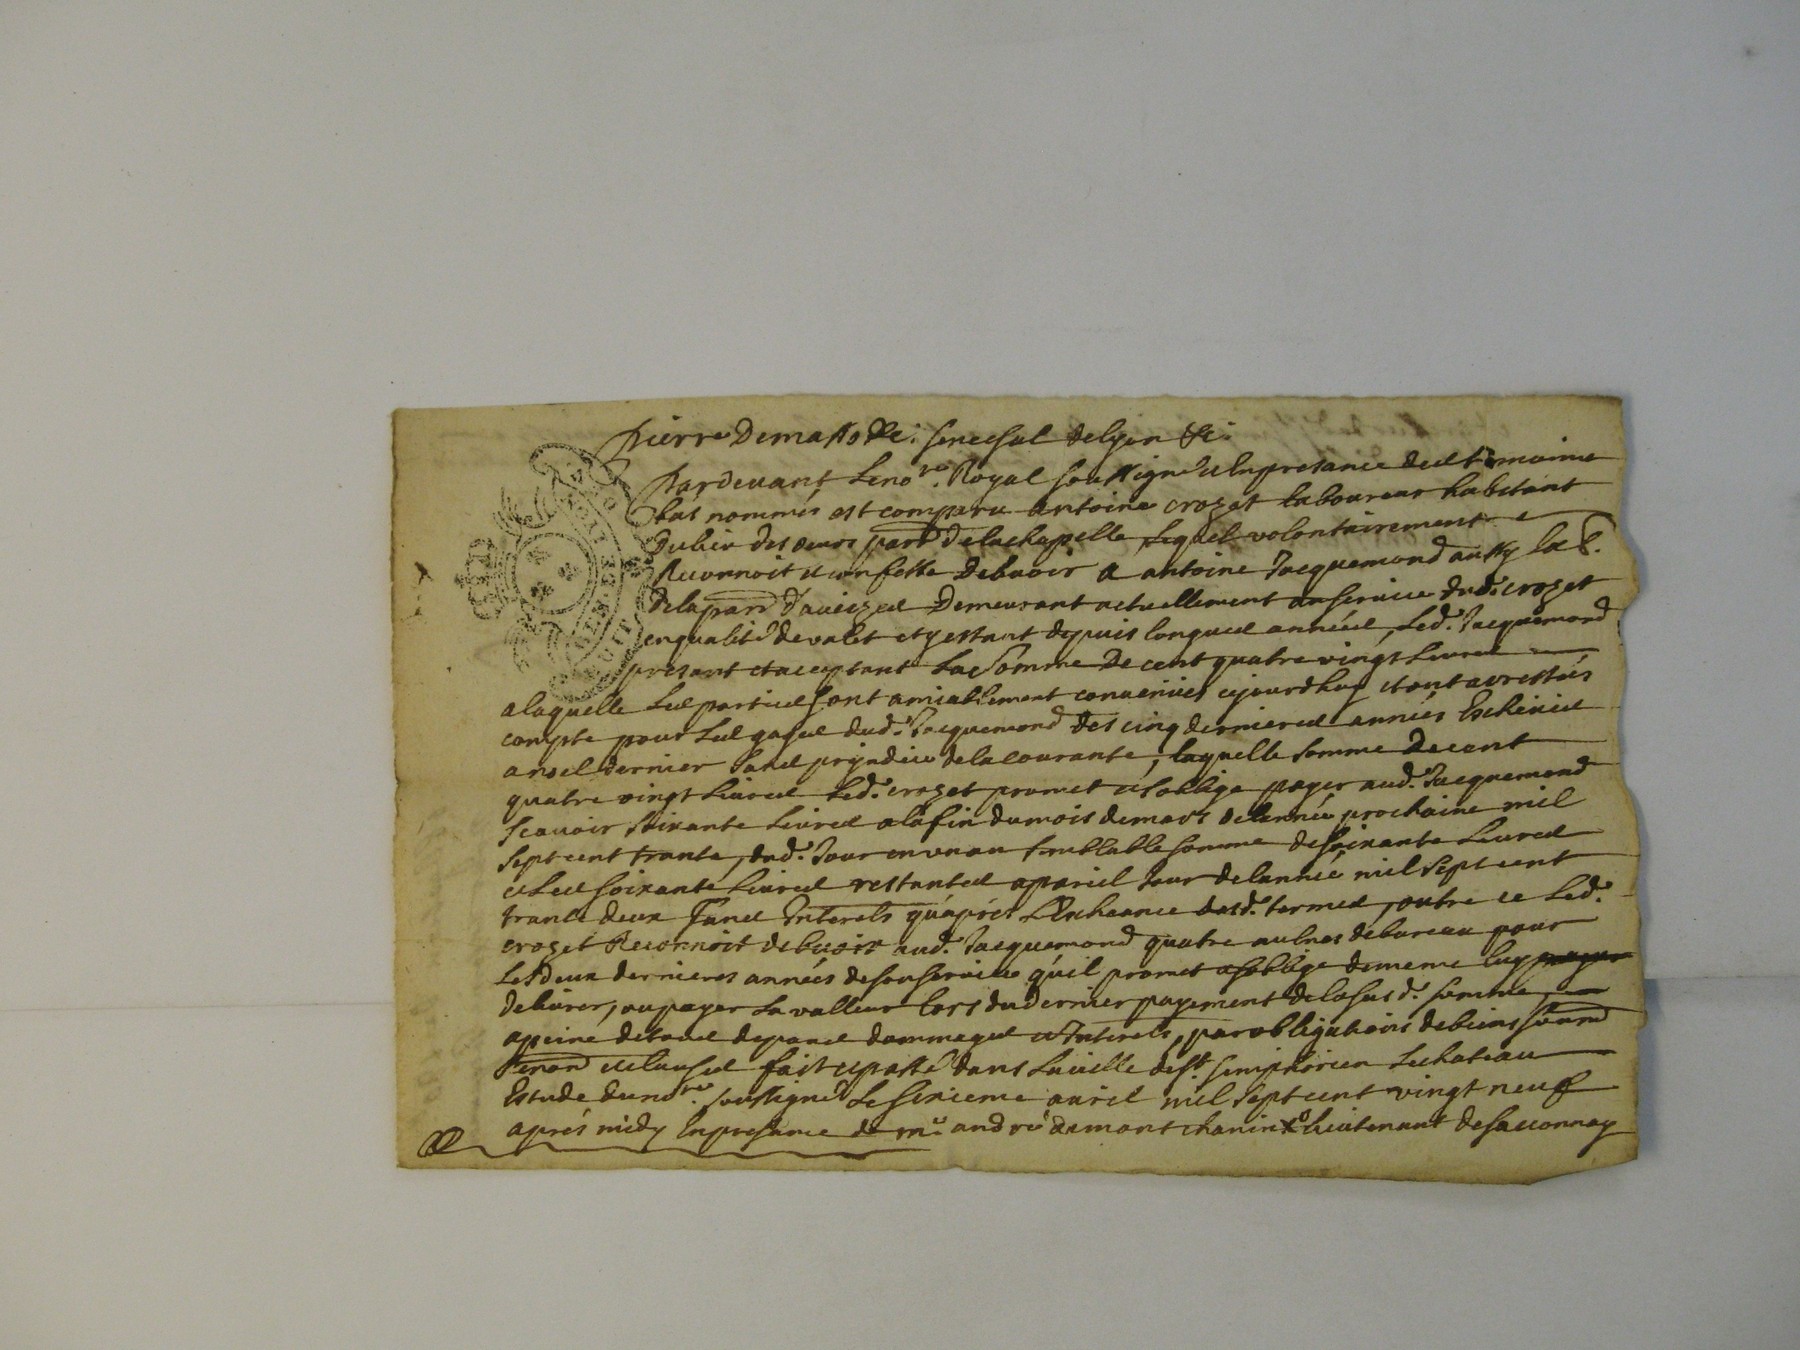 Pierre Demasso &c: senechal delyon &c:
Pardevant Leno.re Royal soussigné et Enpresance des temoins
bas nommés est comparu antoine crozet laboureur habitant
Dulieu des par delachapelle Lequel volontairement
Reconnoit et confesse Debvoir a antoine Jacquemond aussy lab.
delaparr d'aveizes Demeurant actuellement auservice dud. crozet
enqualité devalet et yestant depuis longues années, Led. Jacquemond
présent et aceptant La Somme De cent quatre vingt Livres
alaquelle Les parties sont amiablement convenües cejourdhuy et ont arrestés
compte pour Les gages dud. Jacquemond des cinq dernieres années Escheües
anoel dernier Sans prejudice delacourante, laquelle somme decent
quatre vingt Livres Led. crozet promet et soblige payer aud. Jacquemond
scavoir soixante Livres alafin dumois demars delannée prochaine mil
sept cent trante, dud. Jour en un an semblable somme desoixante Livres
et Les soixante Livres restantes apariel Jour delannée mil sept cent
trante deux Sans Interets qu'aprés L'Escheance desd. termes, outre ce Led.
crozet Reconnoit debvoir aud. Jacquemond quatre aulnes debureau pour
Les deux dernieres années desonservice qu'il promet et soblige dememe luy
delivrer, oupayer la valleur lors dudernier payement delasusd. somme,
apeine detous depans dommages et Interets, par obligations debiens
Renon et clauses fait et passé dans Laville dest simphorien Lechateau
Estude duno.re soussigné Le sixieme avril mil sept cent vingt neuf
aprés midy Enpresance de m.e andré demontchanin Lieutenant desaconnay